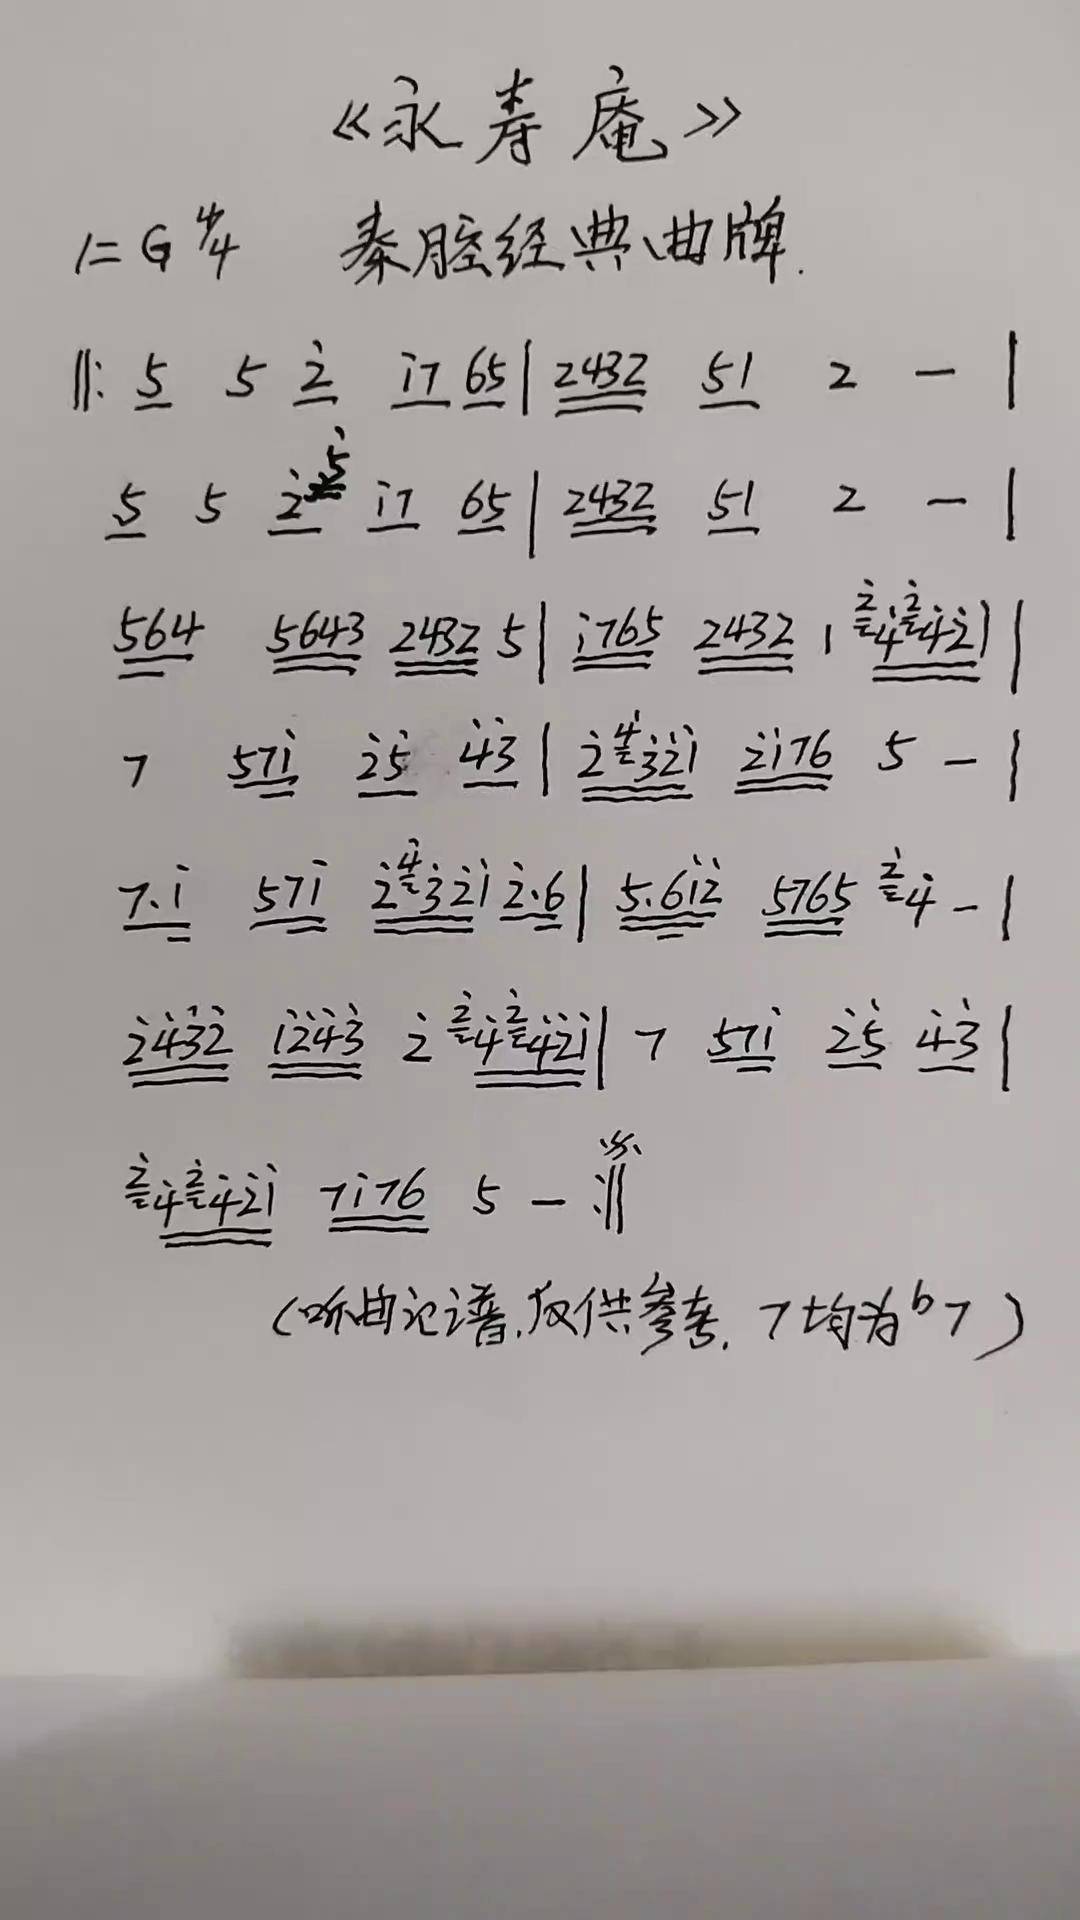 《永寿庵》
1=G 4/4 秦腔经典曲牌.
‖: 5 5 2̇ i̇7 65 | 2432 51 2 - |
5 5 2̇ 5̇ i̇7 65 | 2432 51 2 - |
564 5643 2432 5 | i̇765 2432 1 2̇4̇2̇4̇2̇i̇ |
7 57i̇ 2̇5̇ 4̇3̇ | 2̇4̇3̇2̇i̇ 2̇i̇76 5 - |
7.i̇ 57i̇ 2̇4̇3̇2̇i̇ 2̇.6 | 5.6i̇2̇ 5765 2̇4̇ - |
2̇4̇3̇2̇ i̇2̇4̇3̇ 2̇ 2̇4̇2̇4̇2̇i̇ | 7 57i̇ 2̇5̇ 4̇3̇ |
2̇4̇2̇4̇2̇i̇ 7i̇76 5 - :‖
(听曲记谱,仅供参考, 7均为b7)